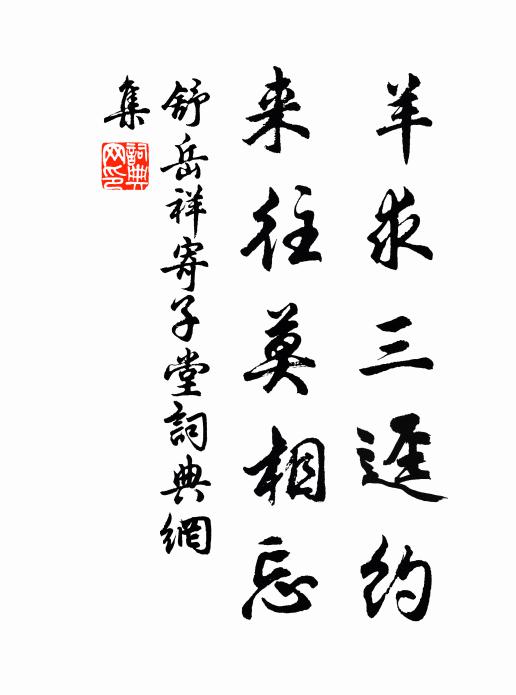 羊求三逕約
来往莫相忘
舒岳祥寄子堂詞典網
集
詞典網印